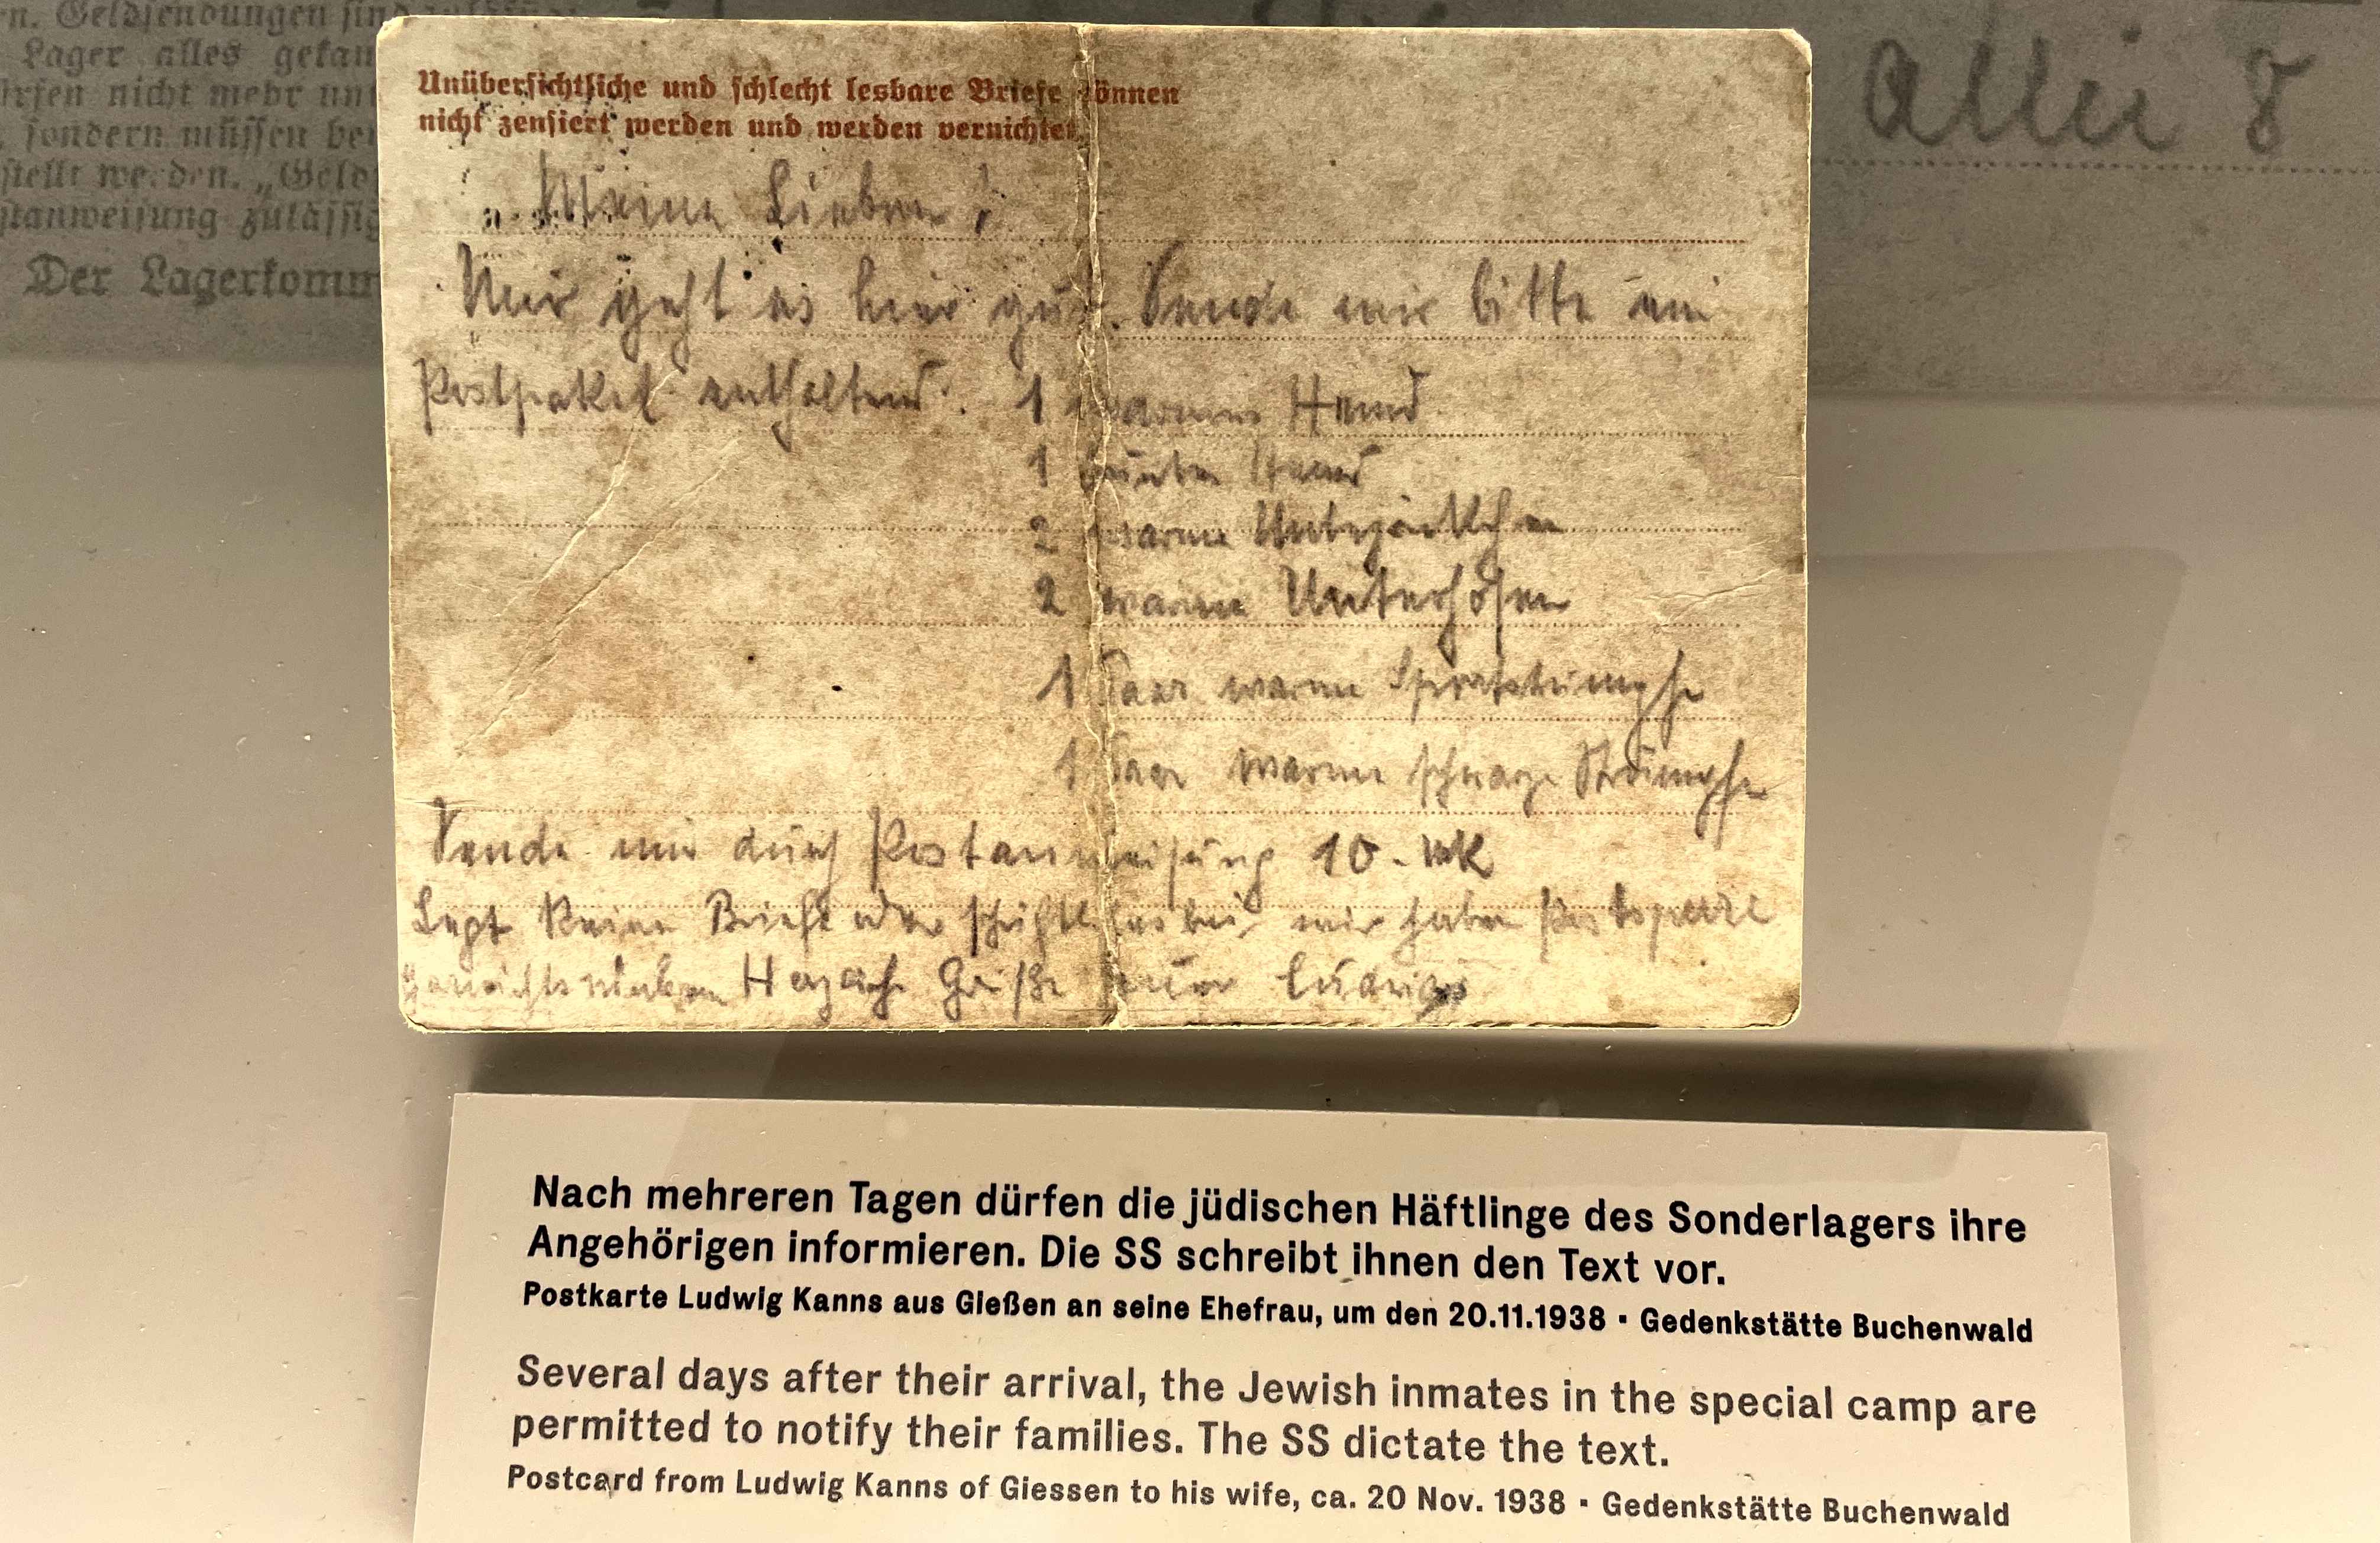 n. Geldsendungen sind
Lager alles
nicht mehr
sondern müssen
"Geld
zulässig
Der Lagerkomm
Unübersichtliche und schlecht lesbare Briefe können
nicht zensiert werden und werden vernichtet.
Meine Lieben!
Mir geht es hier gut. Sende mir bitte ein
Postpaket enthaltend: 1 warmes Hemd
1 Hemd
2 warme Unterjäckchen
2 warme Unterhosen
1 Paar warme Sportstrümpfe
1 Paar warme schwarze Strümpfe
Sende mir durch Postanweisung 10.- Mk
Legt keine Briefe oder schriftliches bei, wir haben Postsperre
Herzliche Grüße Euer Ludwig
Nach mehreren Tagen dürfen die jüdischen Häftlinge des Sonderlagers ihre
Angehörigen informieren. Die SS schreibt ihnen den Text vor.
Postkarte Ludwig Kanns aus Gießen an seine Ehefrau, um den 20.11.1938 ▪ Gedenkstätte Buchenwald
Several days after their arrival, the Jewish inmates in the special camp are
permitted to notify their families. The SS dictate the text.
Postcard from Ludwig Kanns of Giessen to his wife, ca. 20 Nov. 1938 ▪ Gedenkstätte Buchenwald